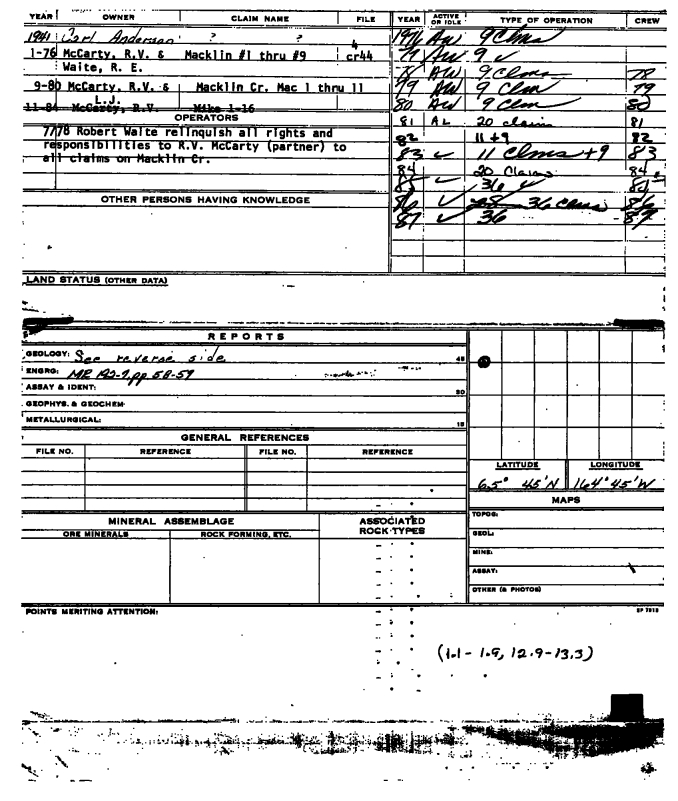 YEAR OWNER CLAIM NAME FILE YEAR ACTIVE OR IDLE TYPE OF OPERATION CREW
1941 Carl Anderson ? ? 1976 AW 9 Clms
1-76 McCarty, R.V. & Macklin #1 thru #9 4 cr44 77 AW 9 ✓
Waite, R. E. 78 AW 9 Clms 78
9-80 McCarty, R.V. & Macklin Cr. Mac 1 thru 11 79 AW 9 Clms 79
L.J. 80 AW 9 Clm 80
11-84 McCarty, R.V. Mike 1-16
OPERATORS 81 AL 20 claims 81
7/78 Robert Waite relinquish all rights and 82 11 +9 82
responsibilities to R.V. McCarty (partner) to 83 ✓ 11 Clms +9 83
all claims on Macklin Cr. 84 20 Claims 84
85 ✓ 36 ✓
OTHER PERSONS HAVING KNOWLEDGE 86 ✓ 36 Clms 86
87 ✓ 36 87
LAND STATUS (OTHER DATA)
REPORTS
GEOLOGY: See reverse side 45
ENGRG: MR 192-7, pp 58-59
ASSAY & IDENT: 30
GEOPHYS. & GEOCHEM
METALLURGICAL: 15
GENERAL REFERENCES
FILE NO. REFERENCE FILE NO. REFERENCE
LATITUDE LONGITUDE
65° 45'N 164° 45'W
MAPS
MINERAL ASSEMBLAGE ASSOCIATED ROCK TYPES
ORE MINERALS ROCK FORMING, ETC.
TOPOG:
GEOL:
MINE:
ASSAY:
OTHER (& PHOTOS)
POINTS MERITING ATTENTION:
(1.1 - 1.9, 12.9-13.3)